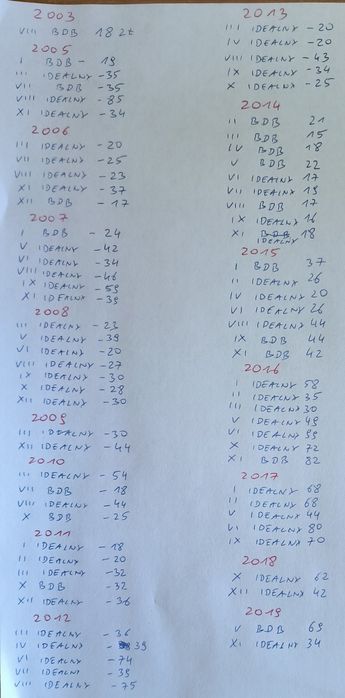 2003
VIII BDB 18 zł
2005
I BDB - 19
III IDEALNY - 35
VII BDB - 35
VIII IDEALNY - 85
XI IDEALNY - 34
2006
III IDEALNY - 20
VII IDEALNY - 25
VIII IDEALNY - 23
XI IDEALNY - 37
XII BDB - 17
2007
I BDB - 24
V IDEALNY - 42
VI IDEALNY - 34
VIII IDEALNY - 46
IX IDEALNY - 59
XI IDEALNY - 39
2008
III IDEALNY - 23
V IDEALNY - 39
VI IDEALNY - 20
VIII IDEALNY - 27
IX IDEALNY - 30
X IDEALNY - 28
XII IDEALNY - 30
2009
III IDEALNY - 30
XII IDEALNY - 44
2010
III IDEALNY - 54
VII BDB - 18
VIII IDEALNY - 44
X BDB - 25
2011
I IDEALNY - 18
II IDEALNY - 20
III IDEALNY - 32
X BDB - 32
XII IDEALNY - 36
2012
III IDEALNY - 36
IV IDEALNY - 39
VI IDEALNY - 74
VII IDEALNY - 39
VIII IDEALNY - 75
2013
III IDEALNY - 20
IV IDEALNY - 20
VIII IDEALNY - 43
IX IDEALNY - 34
X IDEALNY - 25
2014
II BDB 21
III BDB 15
IV BDB 18
V BDB 22
VI IDEALNY 17
VII IDEALNY 19
VIII BDB 17
IX IDEALNY 16
XI BDB 18
IDEALNY
2015
I BDB 37
II IDEALNY 26
IV IDEALNY 20
VI IDEALNY 26
VIII IDEALNY 44
IX BDB 44
XI BDB 42
2016
I IDEALNY 58
II IDEALNY 35
III IDEALNY 30
V IDEALNY 49
VI IDEALNY 99
X IDEALNY 72
XI BDB 82
2017
I IDEALNY 68
II IDEALNY 68
V IDEALNY 44
VI IDEALNY 80
IX IDEALNY 70
2018
X IDEALNY 62
XII IDEALNY 42
2019
V BDB 69
XI IDEALNY 34